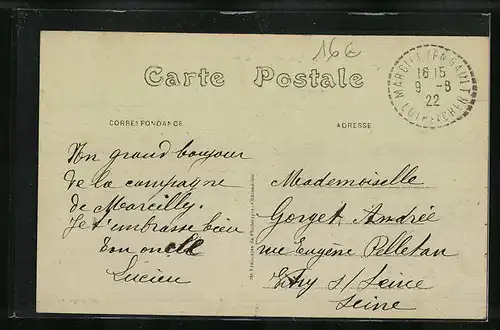 16€
Carte Postale
MARCILLY EN GAULT
16 15
9 - 8
22
LOIR ET CHER
CORRESPONDANCE
ADRESSE
Un grand bonjour
de la campagne
de Marcilly.
Je t'embrasse bien
Ton oncle
Lucien
Mademoiselle
Gorget Andrée
rue Eugène Pelletan
Vitry s/ Seine
Seine